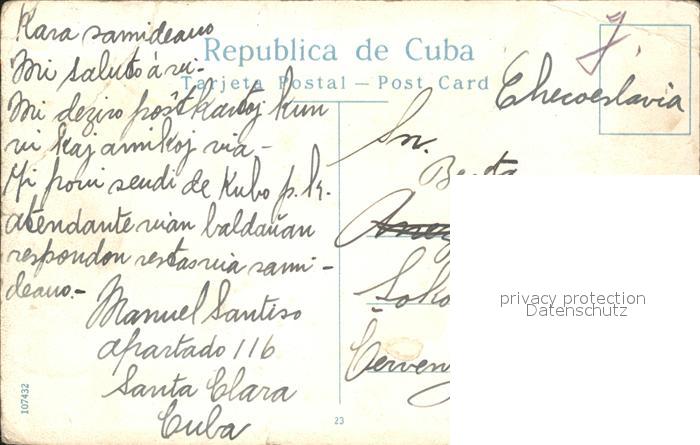 Kara samideano
Mi saluto á vi-
Mi deziro poŝtkartoj kun
vi kaj amikoj via-
Mi povi sendi de Kubo p. k.
atendante vian baldaŭan
respondon restas via sami-
deano.-
Manuel Santiso
apartado 116
Santa Clara
Cuba
Republica de Cuba
Tarjeta Postal — Post Card
Checoeslavia
Sn.
Soko
Červen
privacy protection
Datenschutz
107432
23